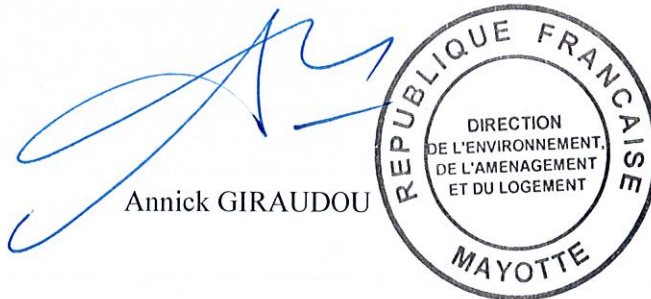 Annick GIRAUDOU
REPUBLIQUE FRANCAISE
DIRECTION
DE L'ENVIRONNEMENT,
DE L'AMENAGEMENT
ET DU LOGEMENT
MAYOTTE